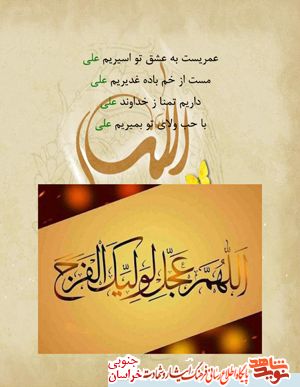 عمریست به عشق تو اسیریم علی
مست از خم باده غدیریم علی
داریم تمنا ز خداوند علی
با حب ولای تو بمیریم علی
اللهم عجل لولیک الفرج
نوید شاهد
پایگاه اطلاع رسانی فرهنگ ایثار و شهادت
خراسان جنوبی